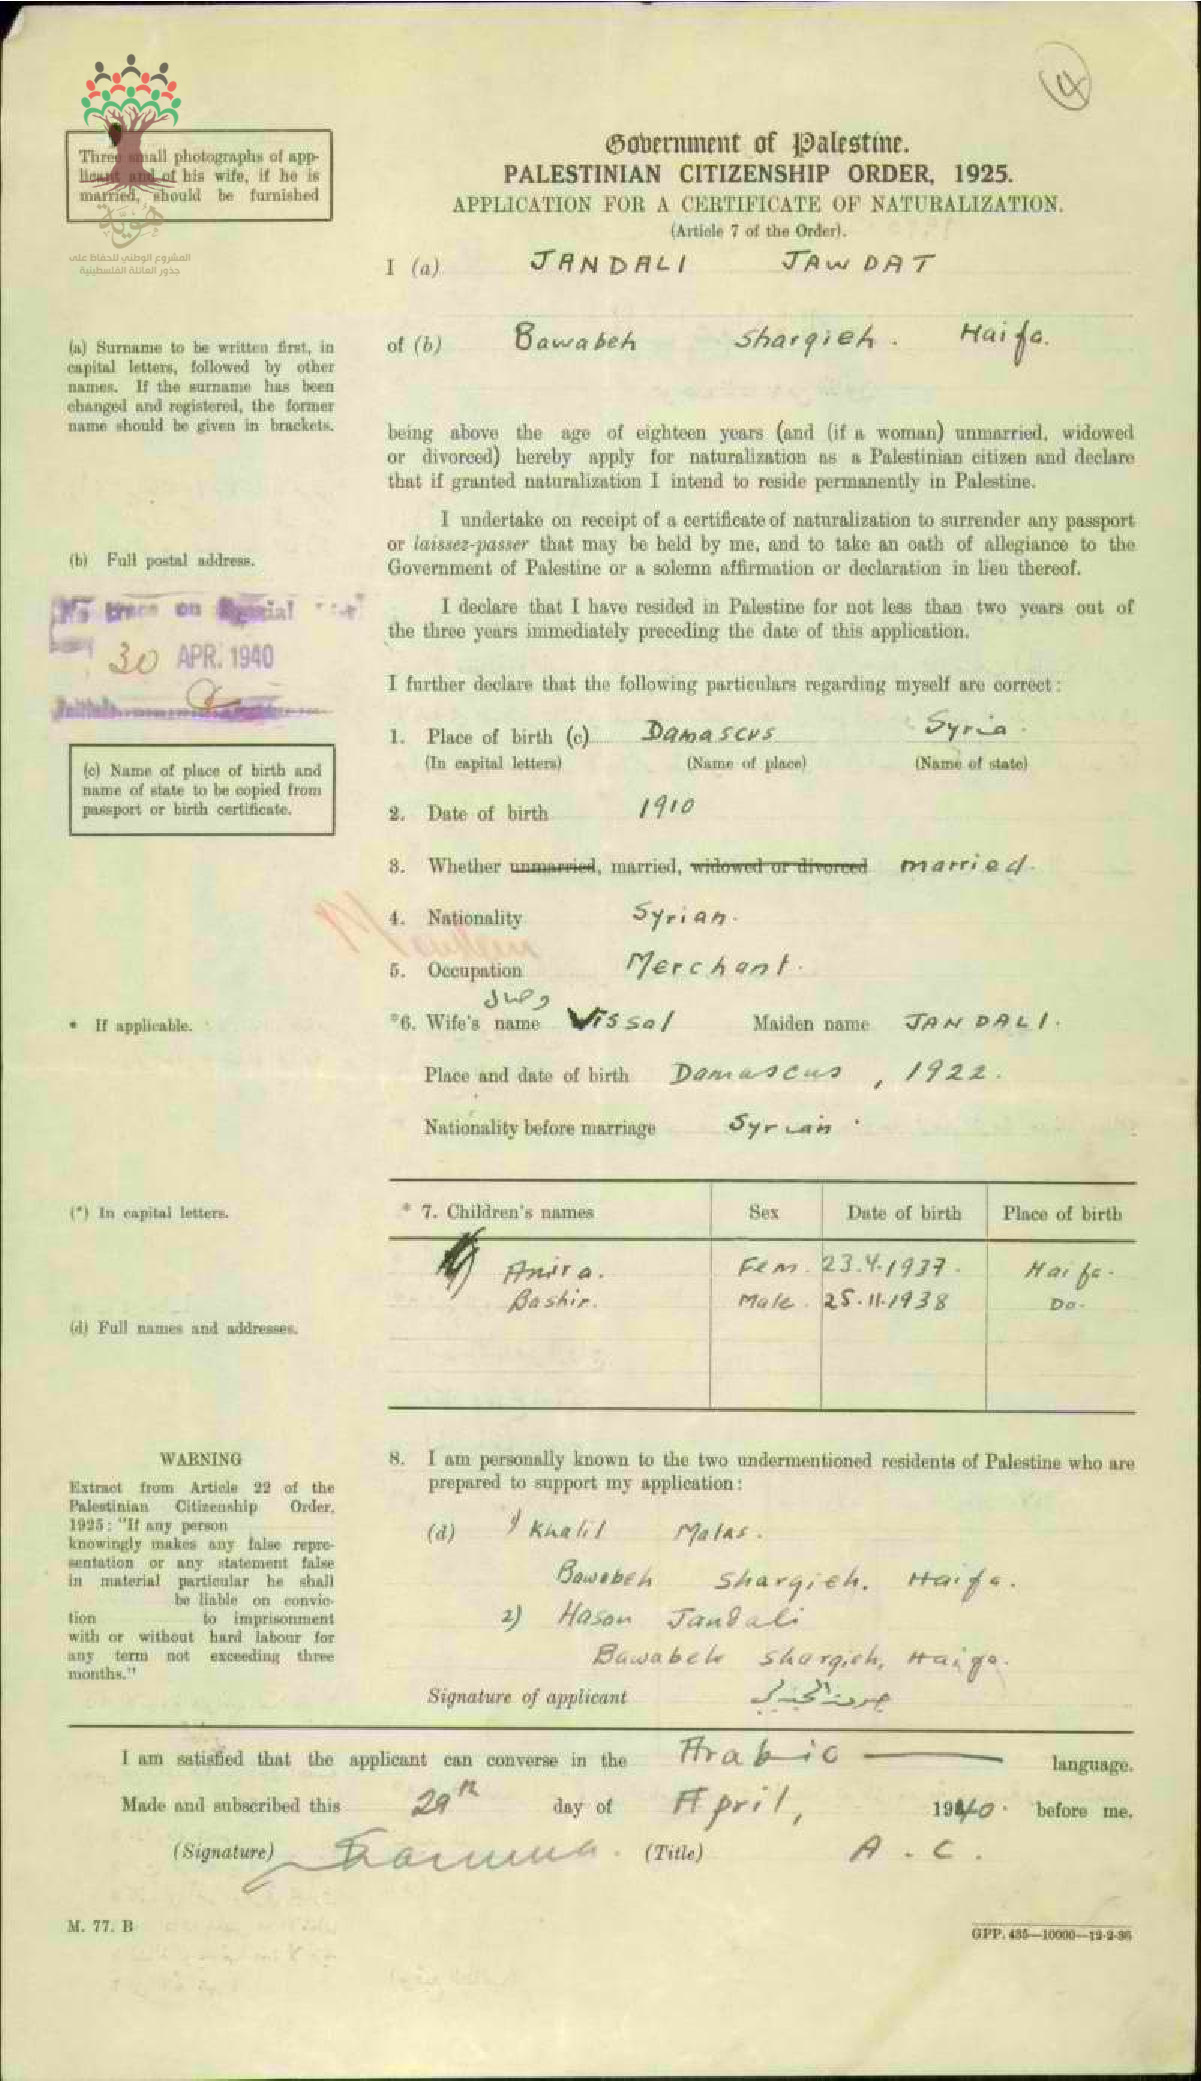 14
Three small photographs of app-
licant and of his wife, if he is
married, should be furnished
هوية
المشروع الوطني للحفاظ على
جذور العائلة الفلسطينية
Government of Palestine.
PALESTINIAN CITIZENSHIP ORDER, 1925.
APPLICATION FOR A CERTIFICATE OF NATURALIZATION.
(Article 7 of the Order).
I (a) JANDALI JAWDAT
of (b) Bawabeh Sharqieh. Haifa.
(a) Surname to be written first, in
capital letters, followed by other
names. If the surname has been
changed and registered, the former
name should be given in brackets.
being above the age of eighteen years (and (if a woman) unmarried, widowed
or divorced) hereby apply for naturalization as a Palestinian citizen and declare
that if granted naturalization I intend to reside permanently in Palestine.
I undertake on receipt of a certificate of naturalization to surrender any passport
or laissez-passer that may be held by me, and to take an oath of allegiance to the
Government of Palestine or a solemn affirmation or declaration in lieu thereof.
(b) Full postal address.
No trace on Special
30 APR. 1940
Initials
I declare that I have resided in Palestine for not less than two years out of
the three years immediately preceding the date of this application.
I further declare that the following particulars regarding myself are correct:
1. Place of birth (c) Damascus Syria.
(In capital letters) (Name of place) (Name of state)
(c) Name of place of birth and
name of state to be copied from
passport or birth certificate.
2. Date of birth 1910
3. Whether unmarried, married, widowed or divorced married.
4. Nationality Syrian.
5. Occupation Merchant.
وصال
* If applicable.
*6. Wife's name Vissal Maiden name JANDALI.
Place and date of birth Damascus, 1922.
Nationality before marriage Syrian.
(*) In capital letters.
* 7. Children's names Sex Date of birth Place of birth
Amira. Fem. 23.4.1937. Haifa.
Bashir. Male. 25.11.1938 Do.
(d) Full names and addresses.
8. I am personally known to the two undermentioned residents of Palestine who are
prepared to support my application:
(d) 1) Khalil Malas.
Bawabeh Sharqieh. Haifa.
2) Hasan Jandali
Bawabeh Sharqieh, Haifa.
Signature of applicant جودت الجندلي
WARNING
Extract from Article 22 of the
Palestinian Citizenship Order,
1925: "If any person
knowingly makes any false repre-
sentation or any statement false
in material particular he shall
be liable on convic-
tion to imprisonment
with or without hard labour for
any term not exceeding three
months."
I am satisfied that the applicant can converse in the Arabic language.
Made and subscribed this 29th day of April, 1940. before me.
(Signature) (Title) A. C.
M. 77. B
GPP. 435—10000—12-2-36